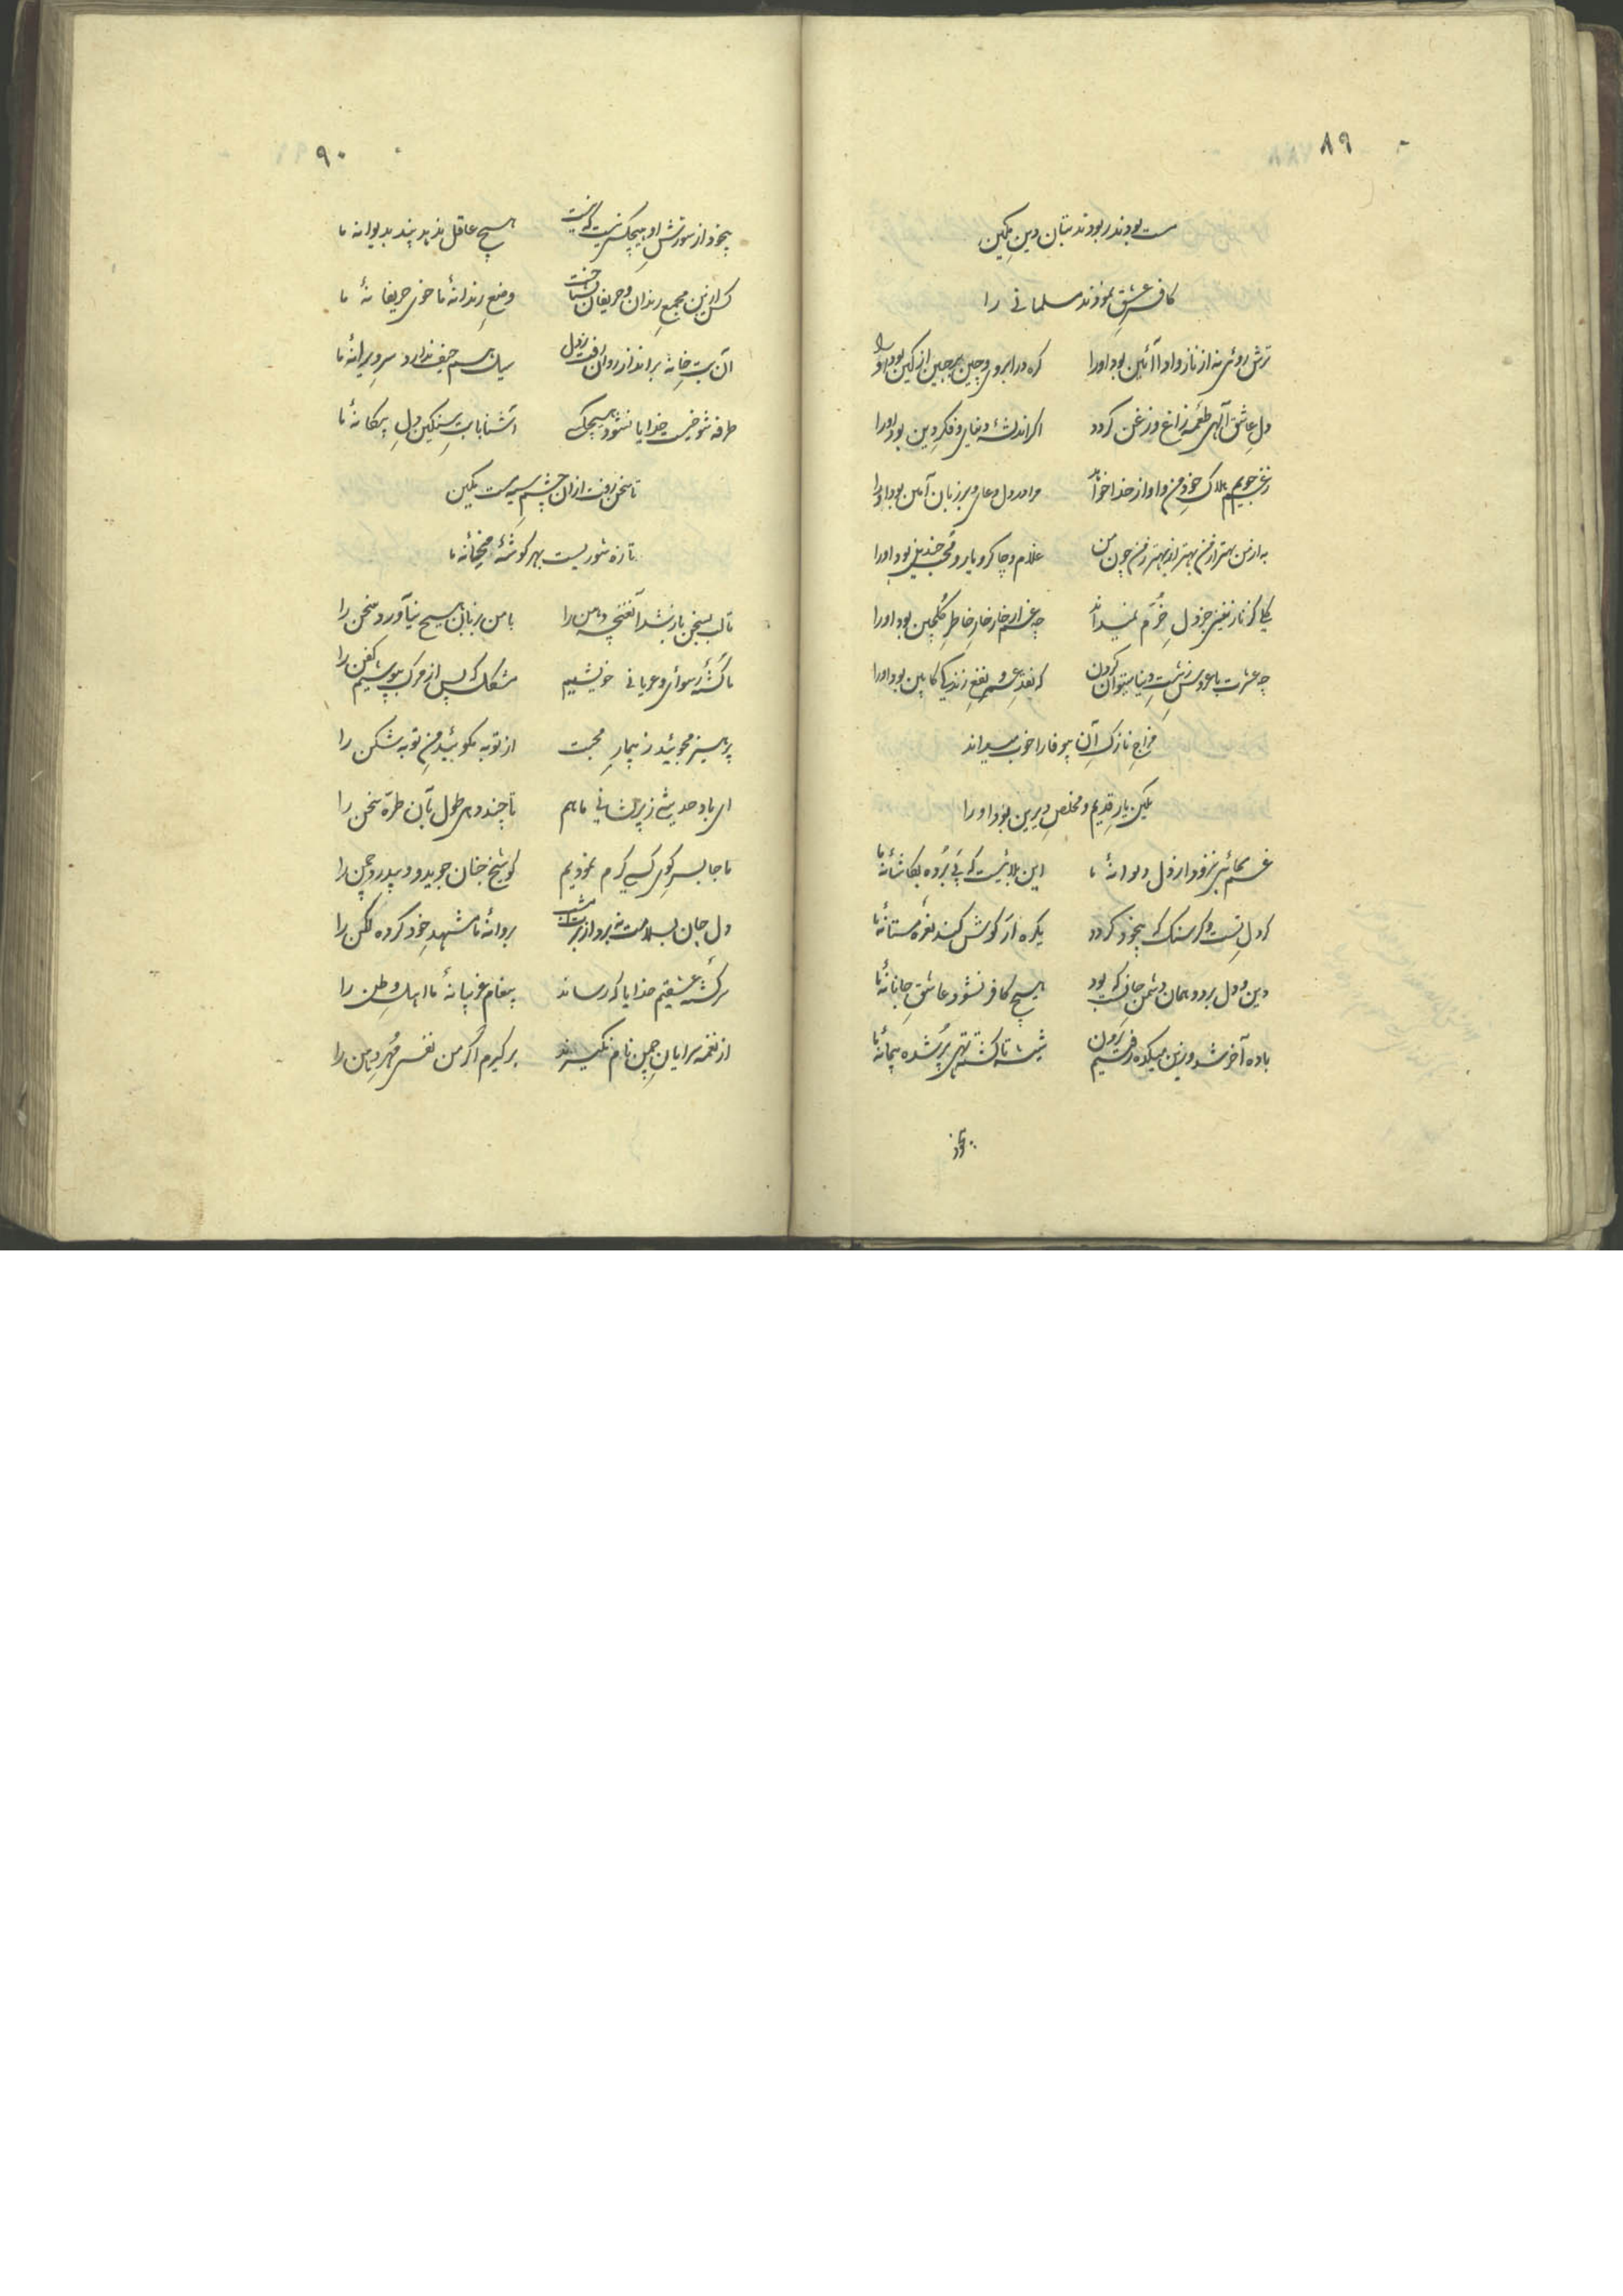 ۸۹
مست بودند ربودند بتان دین مکین
کافر عشق نمودند مسلمانی را
ترش روئی نه از ناز و ادا آئین بود او را گره در ابروی و چین بر جبین از کین بود او را
دل عاشق آلهی طعمهٔ زاغ و زغن گردد اگر اندیشهٔ دنیای و فکر دین بود او را
هلاک خود من و او از خدا خواهد مرا در دل دعای و بر زبان آمین بود او را
به از من بهتر از من بهتر از بهتر ز من چون من غلام و چاکر و یار و محب چندین بود او را
جز دل خرم نمیداند چه غم از خار خار خاطر گلچین بود او را
چه عشرت با عروس زشت دنیا میتوان کردن که نقد عمر و نفع زندگی کابین بود او را
مزاج نازک آن بیوفا را خوب میداند
مکین یار قدیم و مخلص دیرین بود او را
غم بجائی نرود از دل دیوانهٔ ما این بلائیست که پی برده بکاشانهٔ ما
گر دل تست و گر سنگ که بیخود گردد یکره ار گوش کند نعرهٔ مستانهٔ ما
دین و دل برد و همان دشمن جانی که بود هیچ کافر نشود عاشق جانانهٔ ما
باده آخر شد و زین میکده رفتیم برون شیشه تا گشته تهی پر شده پیمانهٔ ما
۹۰
بیخود از سوزش او هیچکسی نیست که نیست هیچ عاقل ندهد پند بدیوانه ما
کس ازین مجمع رندان و حریفان نشناخت وضع رندانهٔ ما خوی حریفانهٔ ما
آن بت خانه برانداز روان رفت ز دل سیل هم حیف ندارد سر ویرانهٔ ما
طرفه شوخیست خدایا نشود هیچکسی آشنا با بت سنگین دل بیگانهٔ ما
تا سخن رفت از ان چشم سیه مست مکین
تازه شوریست بهر گوشهٔ میخانهٔ ما
تا لب بسخن باز شد آن غنچه دهن را با من بزبان هیچ نیاورد سخن را
ما کشتهٔ رسوائی و عریانی خویشیم مشکل که پس از مرگ بپوشیم کفن را
پرهیز مجوئید ز بیمار محبت از توبه مگوئید من توبه شکن را
ای باد حدیثی ز پریشانی ما هم تا چند دهی طول تو آن طره سخن را
ما جا بسر کوی کسی گرم نمودیم گو شیخ جنان جوید و بلبل چمن را
پروانهٔ ما مشهد خود کرده لگن را
سرگشتهٔ عشقیم خدایا که رساند پیغام غریبانهٔ ما اهل وطن را
از نغمه سرایان چمن نام نگیرند برگیرم اگر من نفسی مهر دهن را